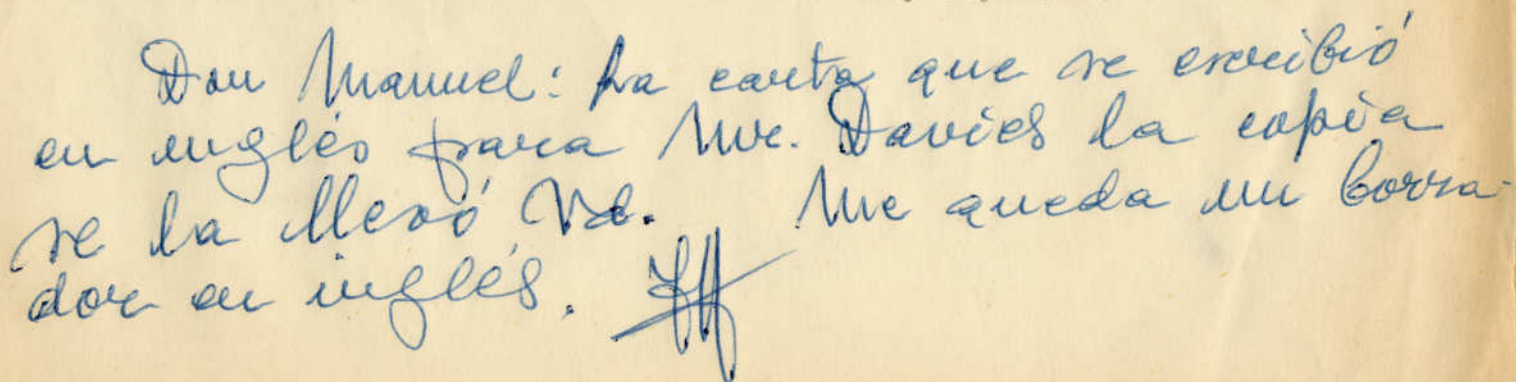 Don Manuel: La carta que se escribió
en inglés para Mr. Davies la copia
se la llevó Vd. Me queda un borra-
dor en inglés.